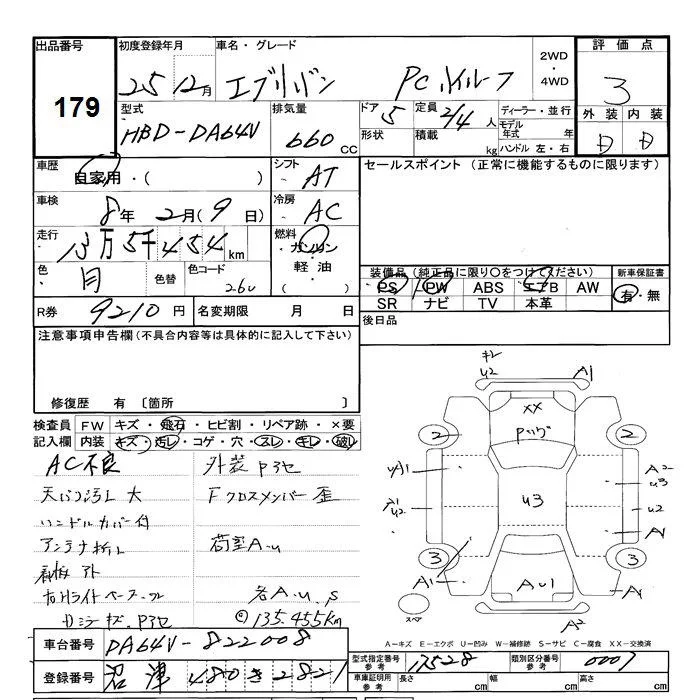 出品番号
179
初度登録年月
25 12月
車名・グレード
エブリイバン PCハイルーフ
2WD
・
4WD
評価点
3
外装 内装
D D
型式
HBD-DA64V
排気量
660 CC
ドア 5
形状
定員 2/4 人
積載 kg
ディーラー・並行
モデル年式 年
ハンドル 左・右
車歴
自家用・( )
シフト AT
セールスポイント (正常に機能するものに限ります)
車検
8年 2月(9日)
冷房 AC
走行
13万5千454km
燃料
ガソリン
軽油
( )
色
色替
色コード
26U
装備品(純正品に限り○をつけてください)
PS PW ABS エアB AW
SR ナビ TV 本革
新車保証書
有・無
R券 9210円
名変期限 月 日
後日品
注意事項申告欄(不具合内容等は具体的に記入して下さい)
修復歴 有 〔箇所 〕
検査員記入欄
FW キズ・飛石・ヒビ割・リペア跡・×要
内装 キズ・汚レ・コゲ・穴・スレ・キレ・破レ
AC不良 外装P3セ
天バリ汚レ 大 Fクロスメンバー歪
ハンドルカバー付
アンテナ折レ 荷室A・U
各A・U・S
◎135.455km
キズ
U2 A1
XX
2 2
U3
A1 A2
U3
A1
U2 U2
A1
3 3
A1 AU1 A1
スペア
A2
A−キズ E−エクボ U−凹み W−補修跡 S−サビ C−腐食 XX−交換済
車台番号 DA64V-822008
登録番号 沼津 480 き 2821
型式指定番号
参考
17528
類別区分番号
参考
0007
車庫証明用
参考
長さ cm 幅 cm 高さ cm